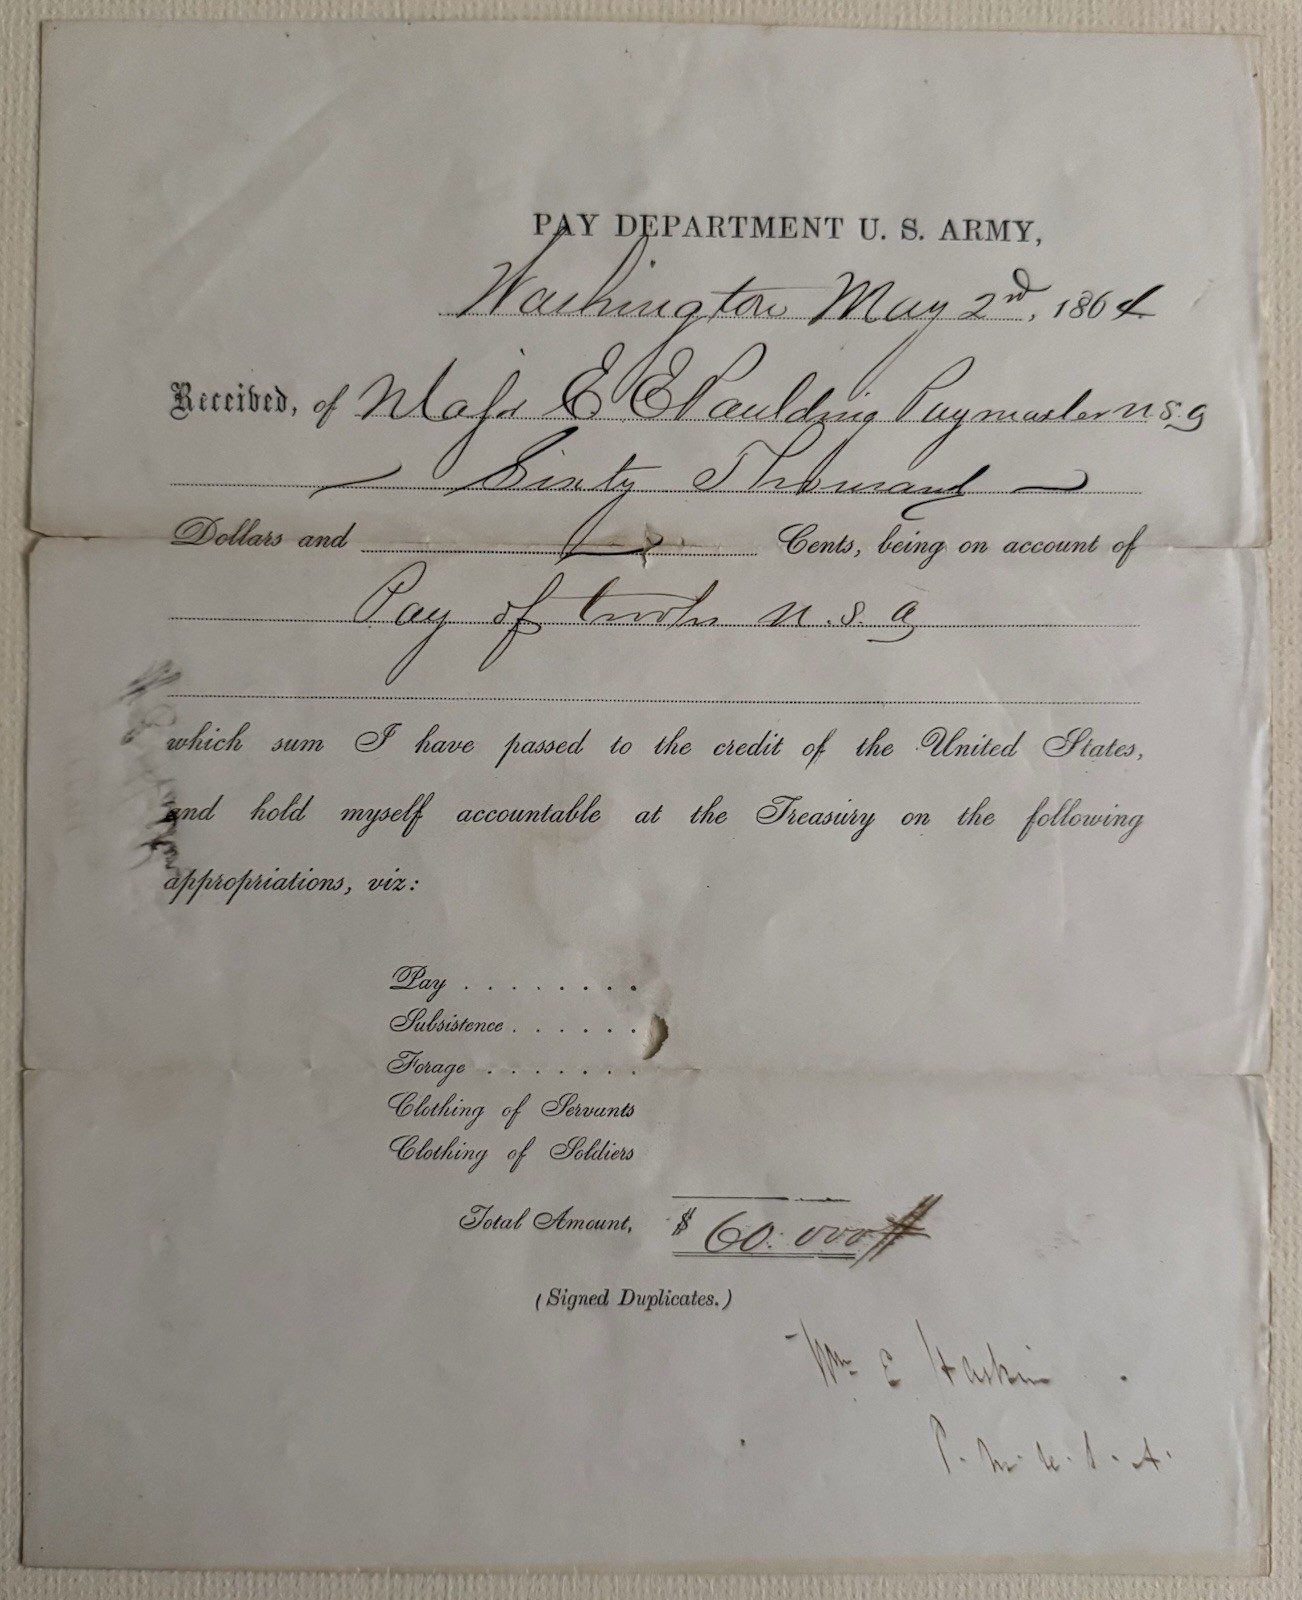 PAY DEPARTMENT U. S. ARMY,
Washington May 2nd, 1864
Received, of Majr E E Paulding Paymaster U S A
Sixty Thousand
Dollars and Cents, being on account of
Pay of troops U. S. A
which sum I have passed to the credit of the United States,
and hold myself accountable at the Treasury on the following
appropriations, viz:
Pay . . . . . . . .
Subsistence . . . . . .
Forage . . . . . . .
Clothing of Servants
Clothing of Soldiers
Total Amount, $ 60.000
(Signed Duplicates.)
Wm E Haskin
P. M. U. S. A.